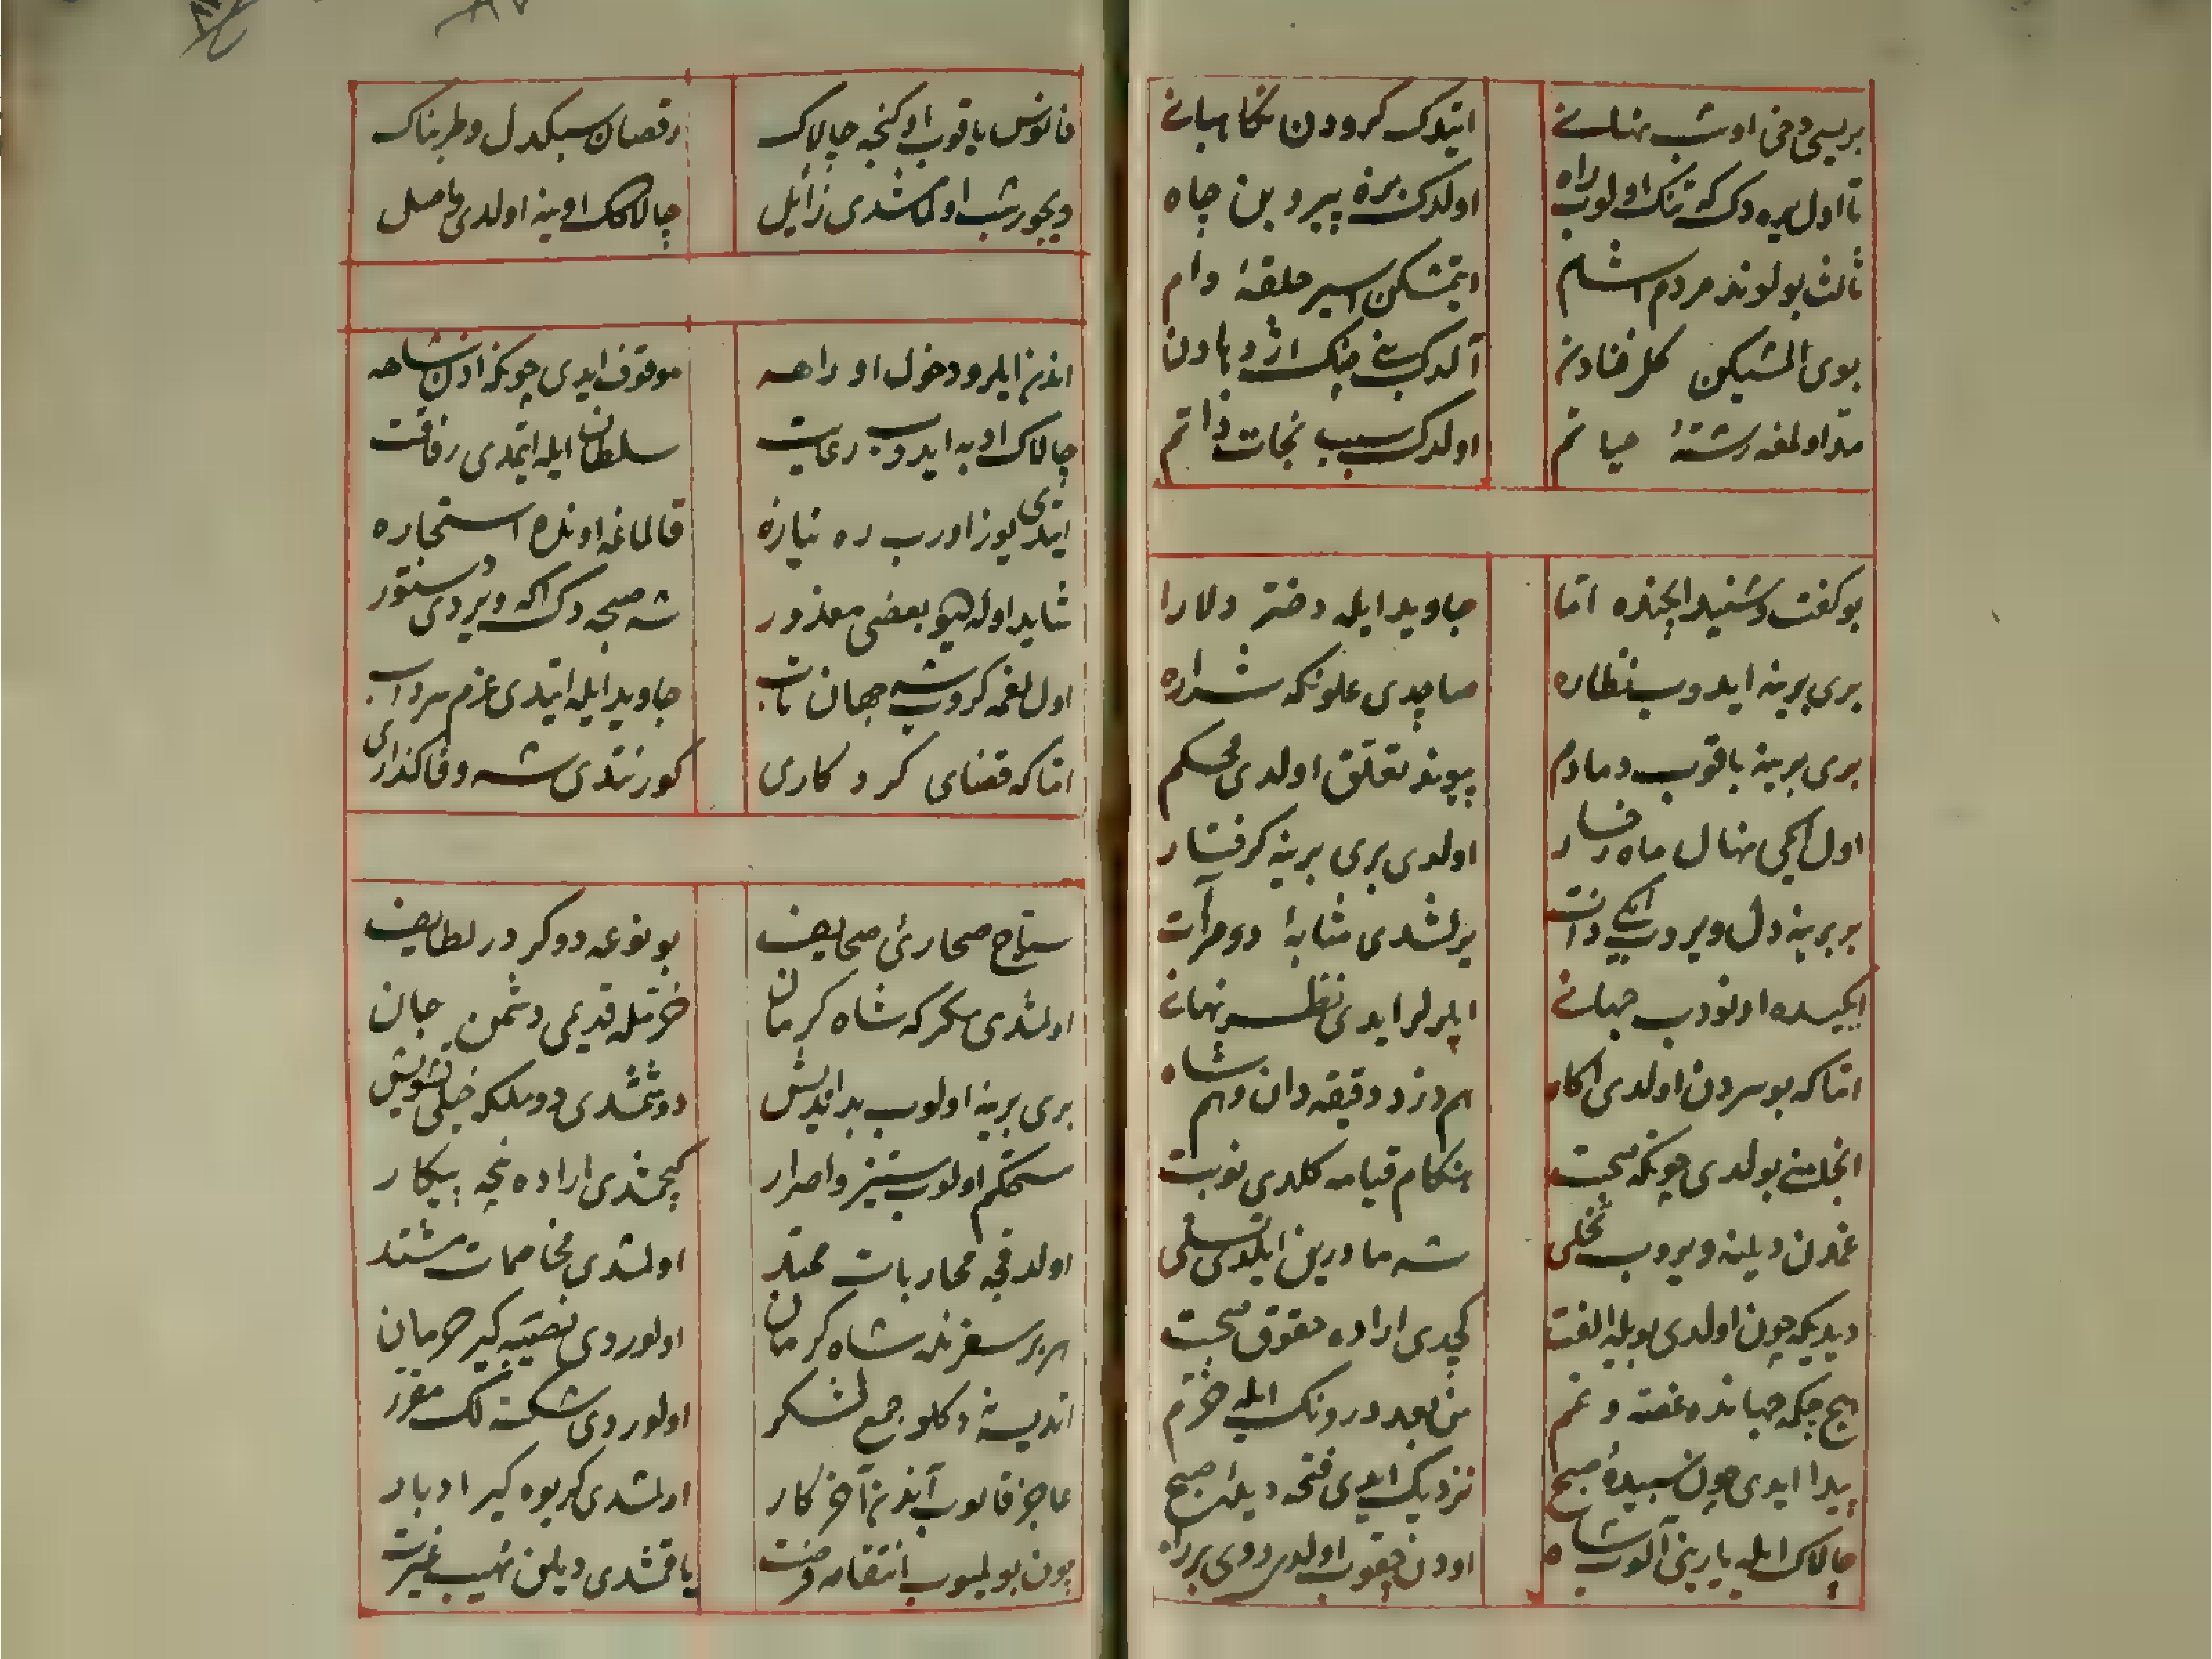 بریسی دخی اوشب نهانے ایتدک کرودن نکاهبانے
تا اول یره دک که تنک اولوب راه اولدک بزه پیرو بن چاه
ثالث بو لوندز مردم آشام ایتمشکن اسیر حلقهٔ دام
بوی المشیکن کلر فنادن آلدک بنے چنک اژدهادن
متد اولمغه رشتهٔ حیاتم اولدک سبب نجات ذاتم
بو کفت و شنید ایچنده اما جاوید ایله دختر دلارا
بری برینه ایدوب نظاره صاچدی علونکه شراره
بری برینه باقوب دمادم پیوند تعلق اولدی محکم
اول ایکی نهال ماه رخسار اولدی بری برینه کرفتار
بربرینه دل ویروب ایکی ذات برلشدی مثابهٔ دو مرآت
ایکیسده اونودب جهانے ایلرلر ایدی نظر نهانے
اما که بو سردن اولدی اکاه هم دزد دقیقه دان و هم شاه
انجامنے بولدی چونکه صحبت هنکام قیامه کلدی نوبت
غمدن دیلنه ویروب تخلی شه مادرین ایلدی تسلی
دیدیکه چون اولدی بویله الفت کچدی اراده حقوق صحبت
هیچ چکمه جهانده غصه و غم من بعد درونک ایله خرم
پیدا ایدی چون سپیدهٔ صبح نزدیک ایدی فتحه دیلهٔ صبح
چالاک ایله یارینی آلوب شاه اودن چقوب اولدی روی برراه
فانوس یاقوب اوکنجه چالاک رقصان سبکدل و طربناک
دیجور شب اولمشدی زائل چالاکک اوینه اولدی واصل
اندن ایلرو دخول او راهه موقوف ایدی چونکه اذن شاهه
چالاک ادبه ایدوب رعایت سلطان ایله ایتمدی رفاقت
ایتدی یوز اورب ره نیازه قالماغه اونده استجازه
شاید اوله دیو بعضی معذور شه صبحه دک اکه ویردی دستور
اول لغمه کروب شه جهان تاب جاوید ایله ایتدی عزم سرداب
اما که قضای کردکاری کور نتدی شه وفاکذاری
سیاح صحاریٔ صحایف بو نوعه دوکر در لطایف
اولمشدی مکر که شاه کرمان خرمله قدیمی دشمن جان
بری برینه اولوب بداندیش دوشمشدی دو ملکه خیلی تشویش
مستحکم اولوب ستیز و اصرار کچمشدی اراده نچه پیکار
اولدقجه محاربات ممتد اولمشدی مخاصمات مشتد
هر بر سفرنده شاه کرمان اولوردی نصیبه کیر حرمان
اندیشه دکلو جمع لشکر اولوردی شکست لک مقرر
عاجز قالوب آندن آخر کار اولمشدی کریوه کیر ادبار
چون بولمیوب انتقامه فرصت یاقمشدی دیلن نهیب غیرت